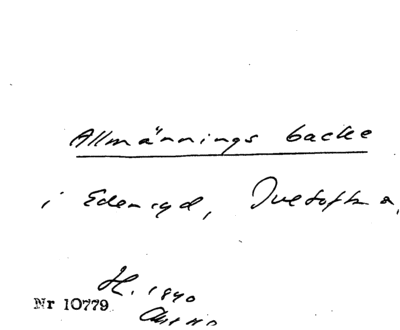 Allmännings backe
i Edenryd, Ivetofta,
H. 1940
Nr 10779